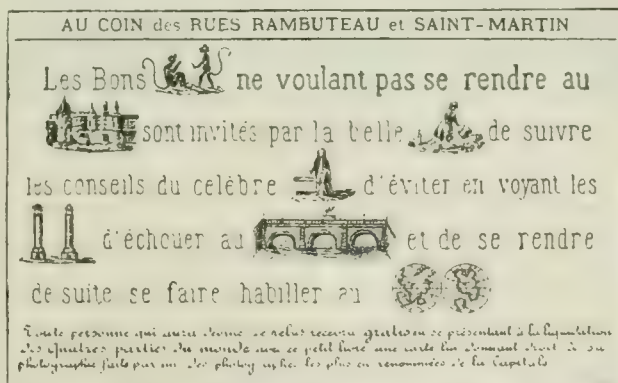 AU COIN des RUES RAMBUTEAU et SAINT-MARTIN
Les Bons ne voulant pas se rendre au
sont invités par la belle de suivre
les conseils du célèbre d'éviter en voyant les
d'échouer au et de se rendre
de suite se faire habiller au
Toute personne qui aura deviné ce rébus recevra gratis en se présentant à la liquidation
des Quatres parties du monde avec ce petit livre une carte lui donnant droit à sa
photographie faite par un des photographes les plus en renommées de la Capitale